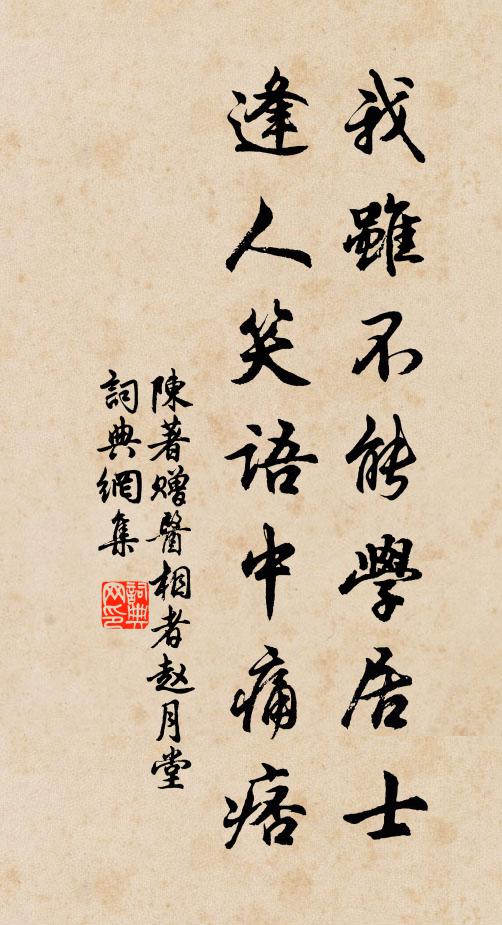 我雖不能學居士
逢人笑語中痛痞
陳著贈醫相者赵月堂
詞典網集
詞典
网印